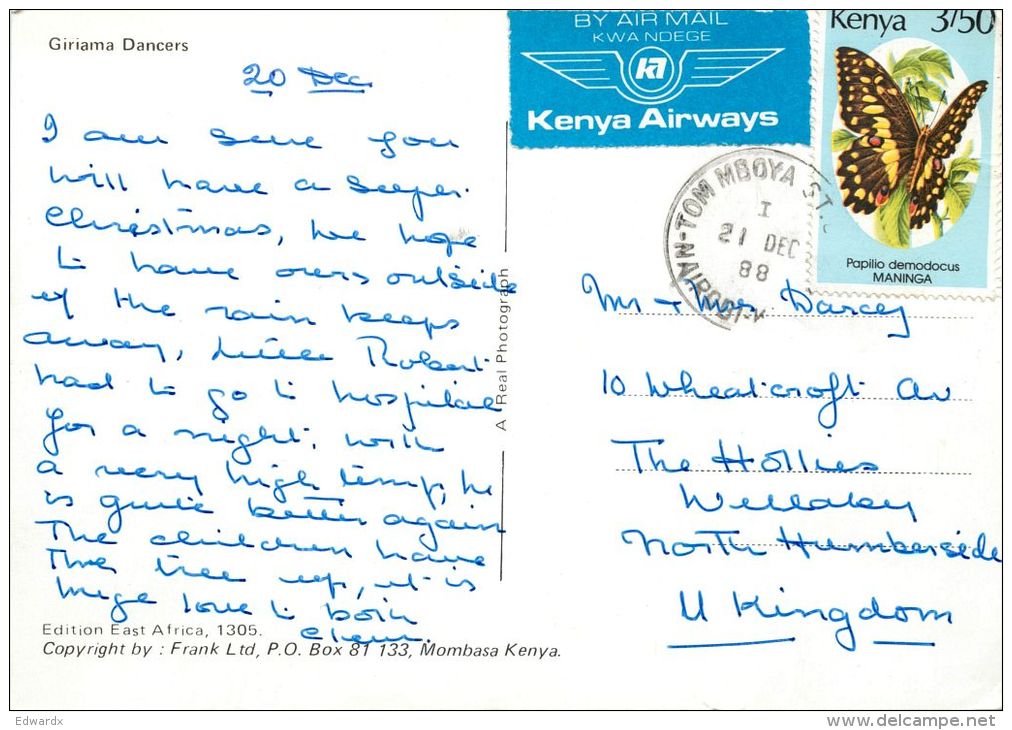 Giriama Dancers
20 Dec
I am sure you
will have a super
Christmas, we hope
to have ours outside
if the rain keeps
away, Little Robert
had to go to hospital
for a night, with
a very high temp, he
is quite better again
The children have
the tree up, it is
huge love to both
Edition East Africa, 1305.
Copyright by : Frank Ltd, P.O. Box 81 133, Mombasa Kenya.
A Real Photograph
BY AIR MAIL
KWA NDEGE
Kenya Airways
Kenya 3/50
Papilio demodocus
MANINGA
TOM MBOYA ST.
I
21 DEC
88
NAIROBI
Mr + Mrs Darcey
10 Wheatcroft Av
The Hollies
Wellaby
North Humberside
U Kingdom
Edwardx
delcampe.net